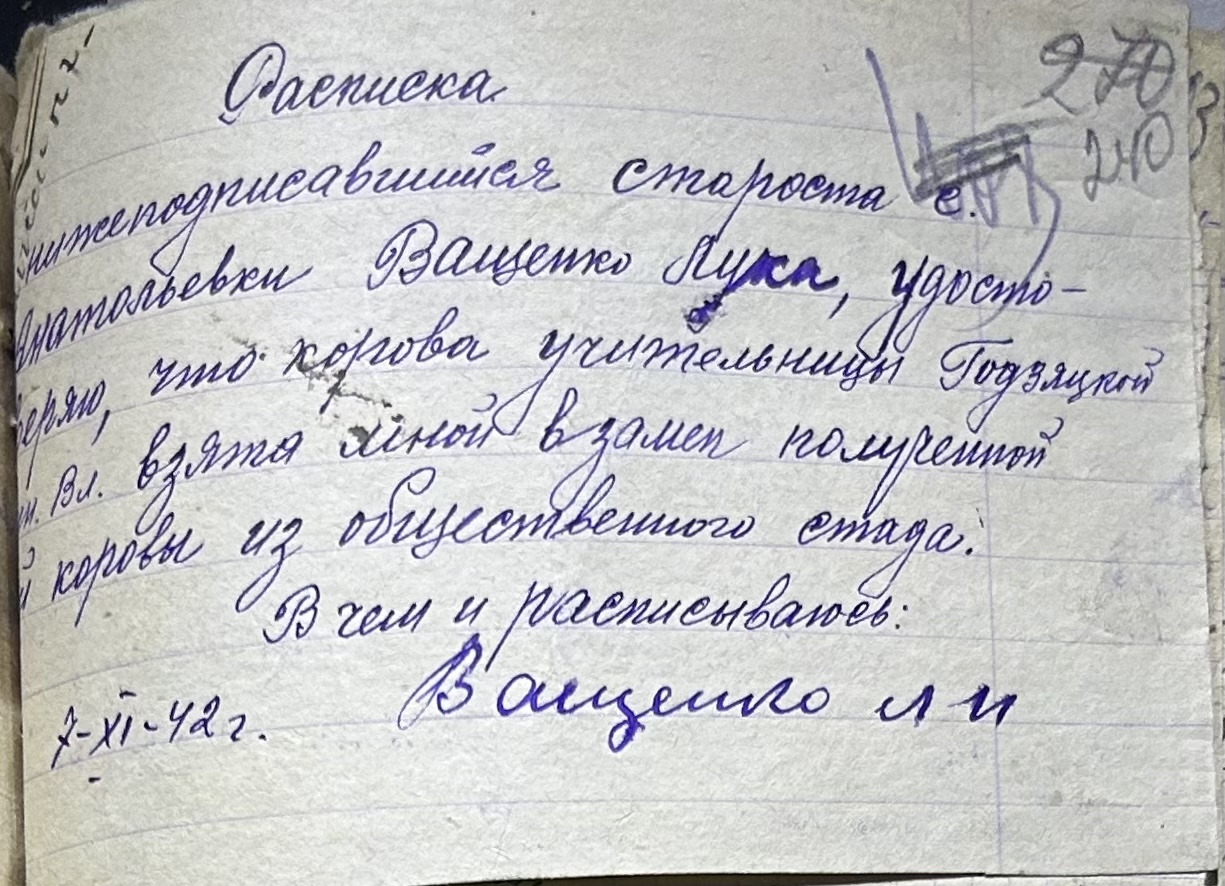 270
240
Расписка
нижеподписавшийся староста с.
Анатольевки Ващенко Лука, удосто-
веряю, что корова учительницы Годзяцкой
Вл. взята мной взамен полученной
коровы из общественного стада.
В чем и расписываюсь:
7-XI-42 г. Ващенко Л И